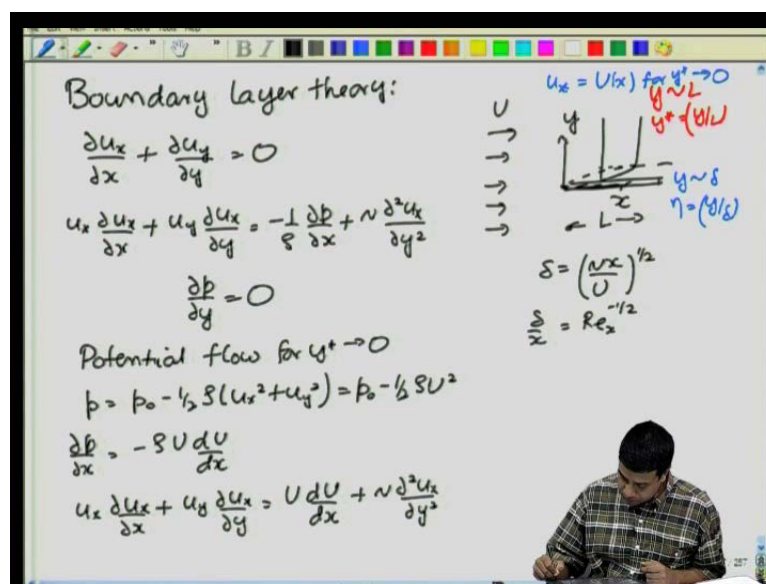 Boundary layer theory:
∂uₓ/∂x + ∂u_y/∂y = 0
uₓ ∂uₓ/∂x + u_y ∂uₓ/∂y = -1/ρ ∂p/∂x + ν ∂²uₓ/∂y²
∂p/∂y = 0
Potential flow for y* → 0
p = p₀ - 1/2 ρ(uₓ² + u_y²) = p₀ - 1/2 ρU²
∂p/∂x = -ρU dU/dx
uₓ ∂uₓ/∂x + u_y ∂uₓ/∂y = U dU/dx + ν ∂²uₓ/∂y²
uₓ = U(x) for y* → 0
y ~ L
y* = (y/L)
U
y
x
y ~ δ
η = (y/δ)
← L →
δ = (νx/U)^1/2
δ/x = Reₓ^-1/2